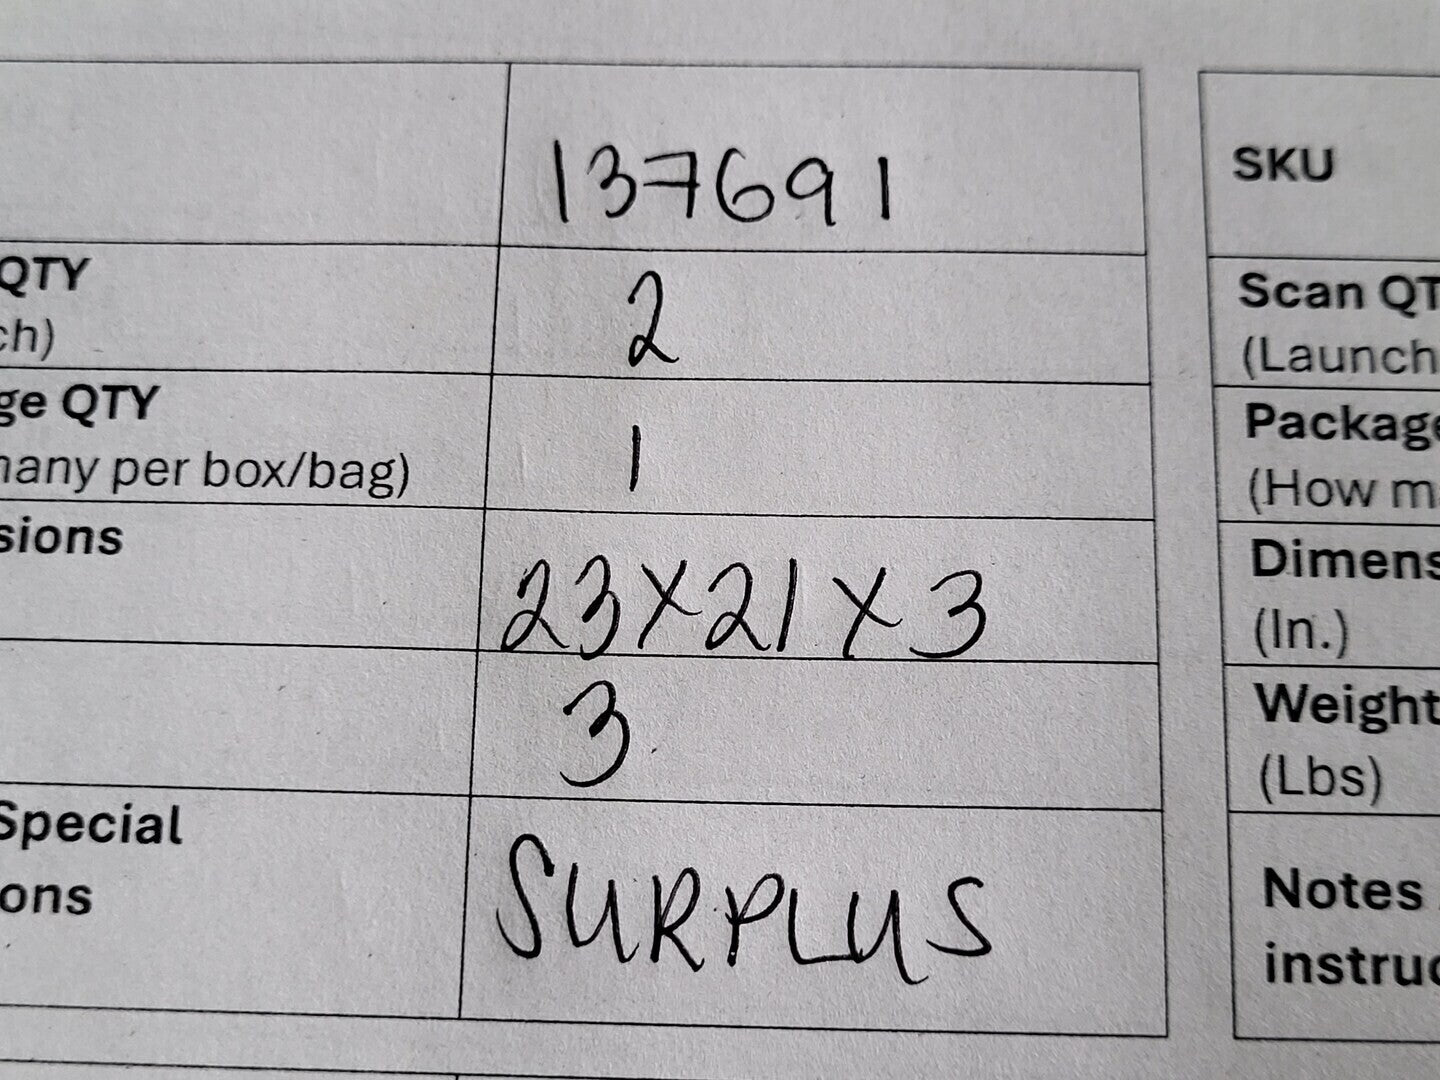 137691
QTY
ch)
2
ge QTY
many per box/bag)
1
sions
23x21x3
3
Special
ons
SURPLUS
SKU
Scan QT
(Launch
Package
(How m
Dimens
(In.)
Weight
(Lbs)
Notes
instruc